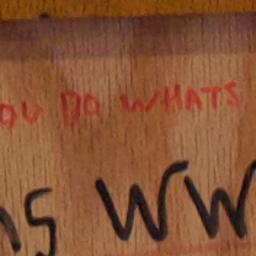 OU DO WHATS
NS WW